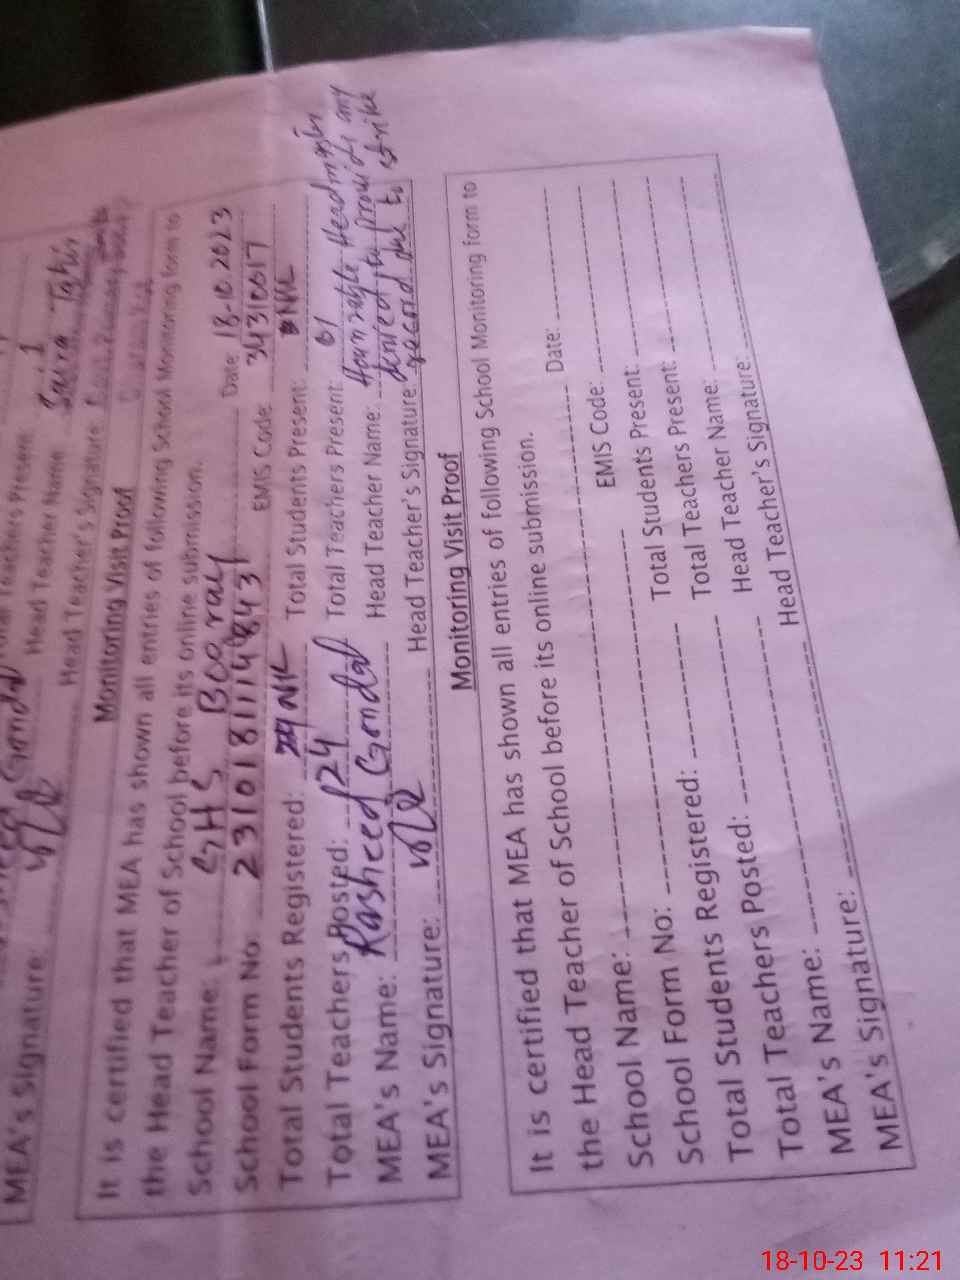 Teachers Present
Gondal Head Teacher Name: Saira Tahir
MEA's Signature: Head Teacher's Signature:
Monitoring Visit Proof
It is certified that MEA has shown all entries of following School Monitoring form to
the Head Teacher of School before its online submission.
School Name: GHS Booray Date: 18-10-2023
School Form No: 2310181114843 EMIS Code: 34310017
Total Students Registered: NIL Total Students Present: NIL
Total Teachers Posted: 24 Total Teachers Present: 01
MEA's Name: Rasheed Gondal Head Teacher Name: Hounrable Headmaster
denied to provide any
MEA's Signature: Head Teacher's Signature: record due to strike
Monitoring Visit Proof
It is certified that MEA has shown all entries of following School Monitoring form to
the Head Teacher of School before its online submission.
School Name: Date:
School Form No: EMIS Code:
Total Students Registered: Total Students Present:
Total Teachers Posted: Total Teachers Present:
MEA's Name: Head Teacher Name:
MEA's Signature: Head Teacher's Signature:
18-10-23 11:21